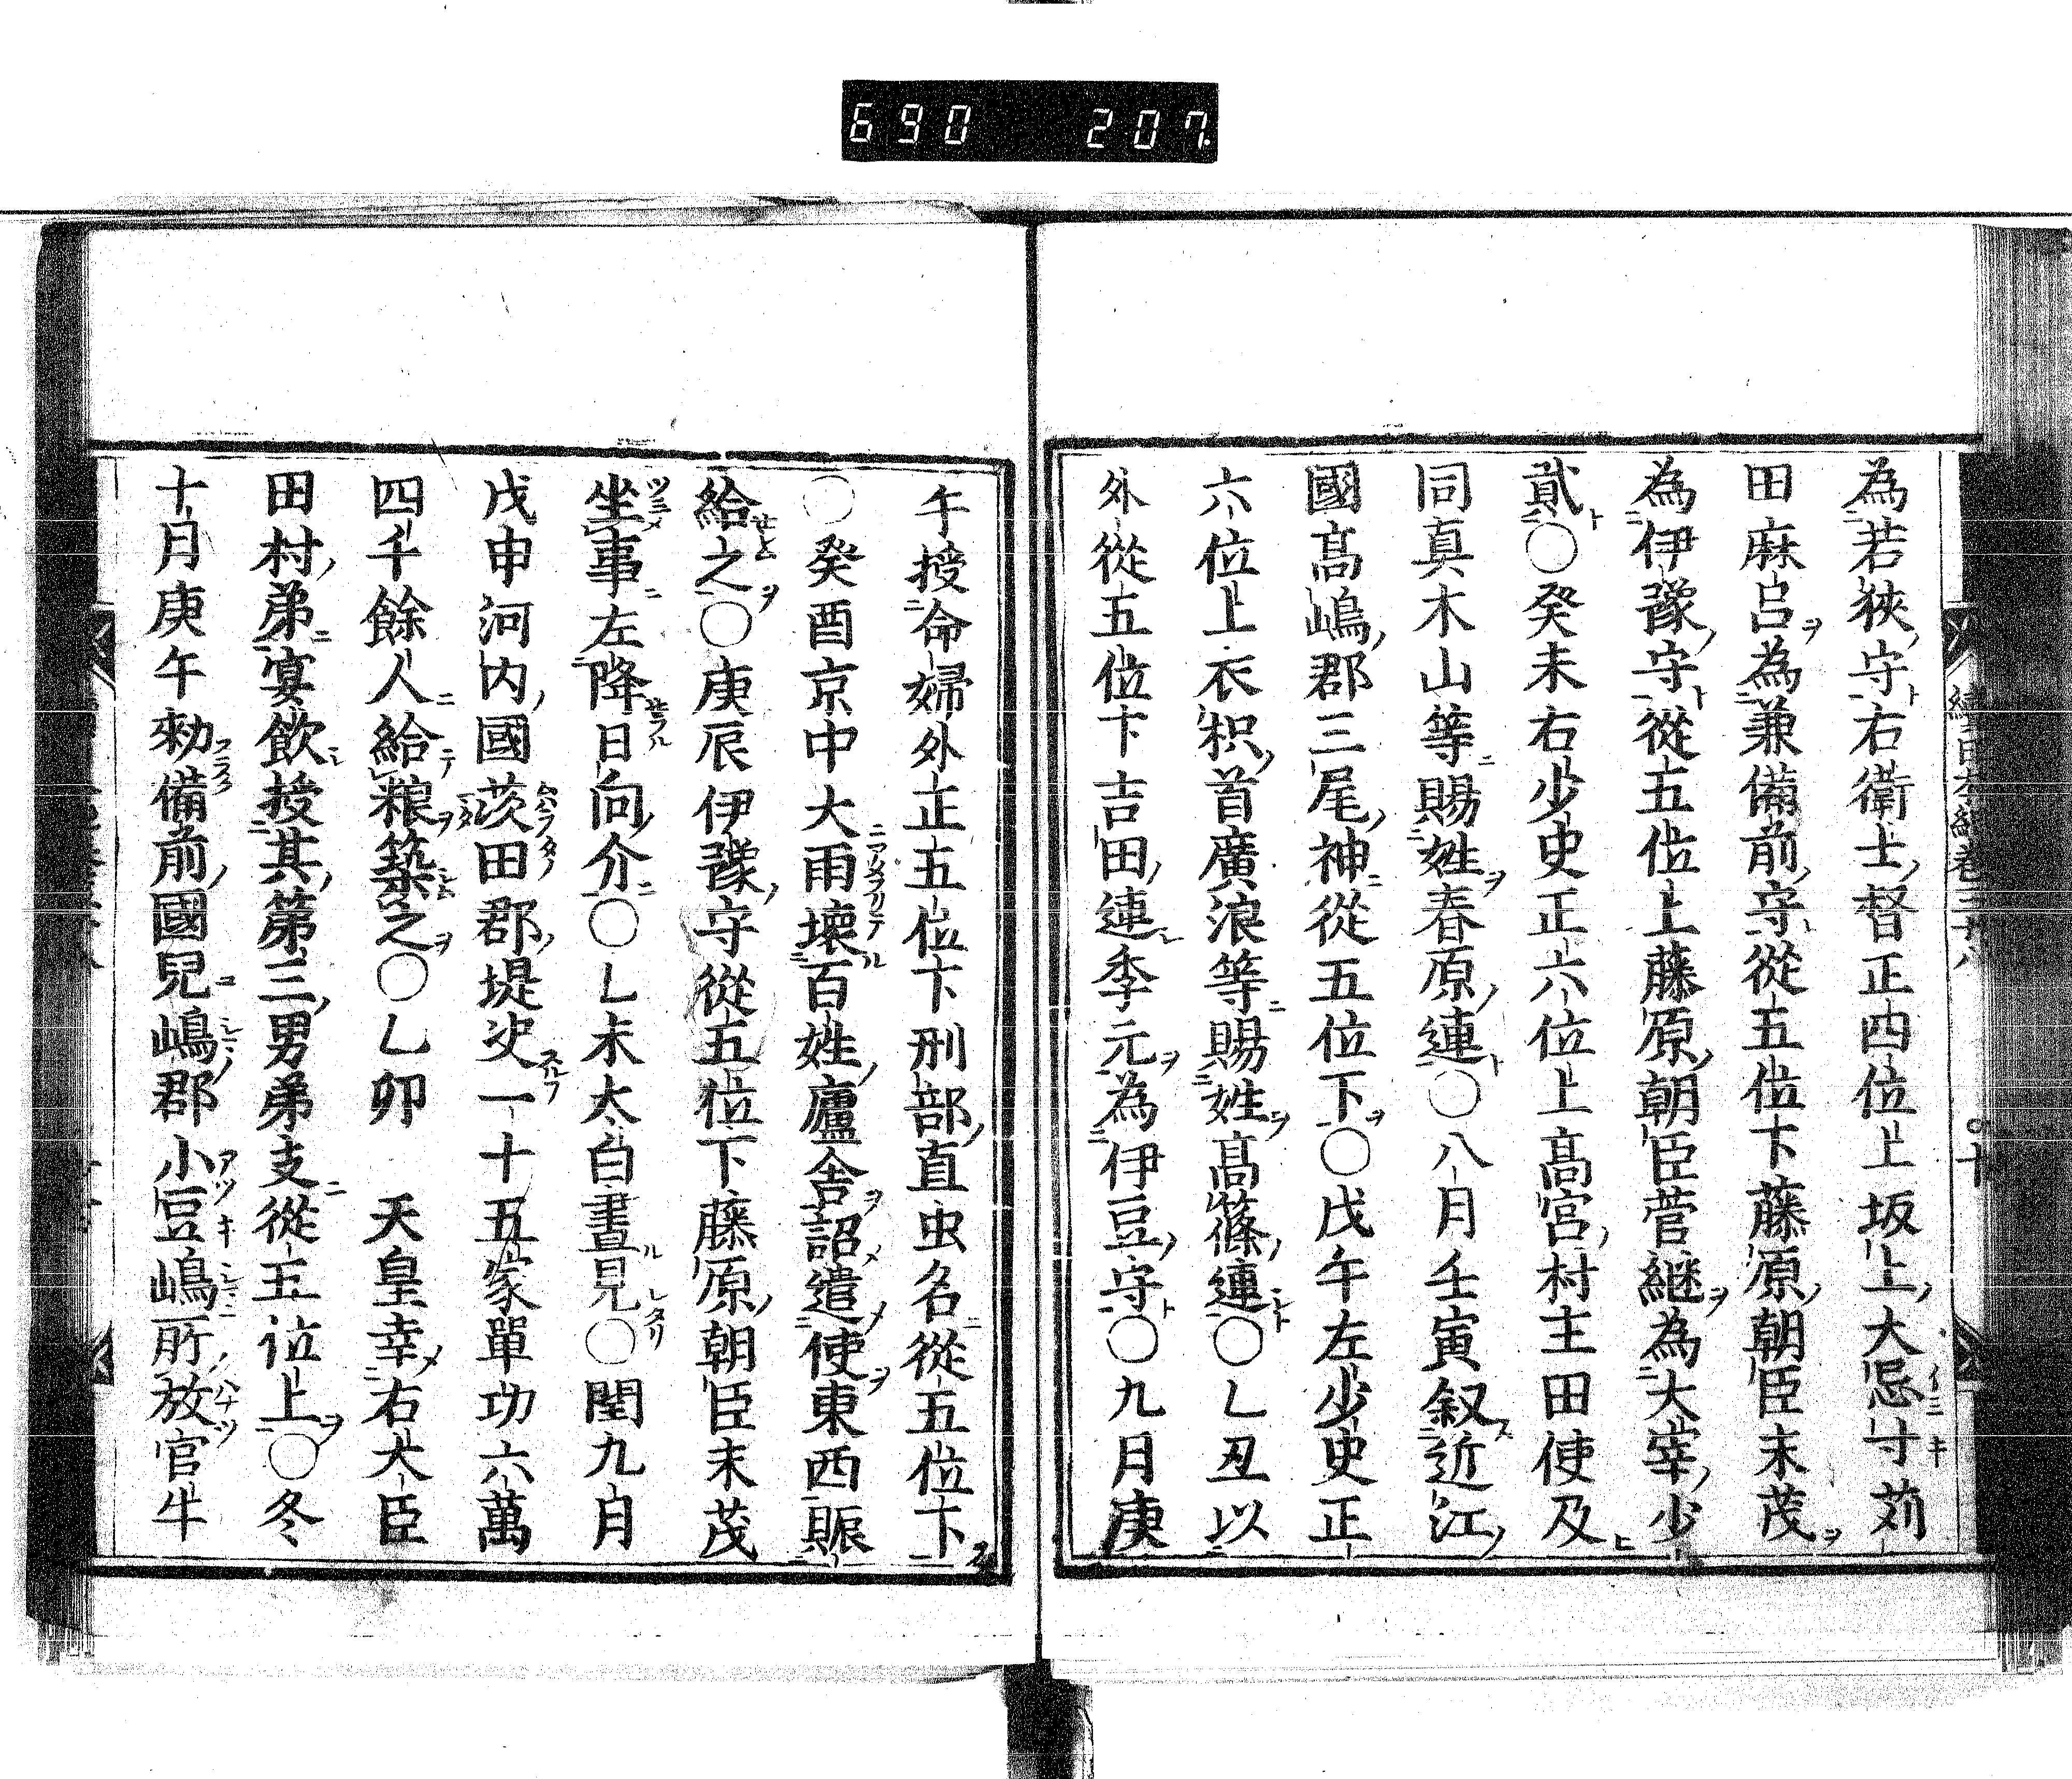 690 207
為若狹守右衛士督正四位上坂上大忌寸苅
田麻呂為兼備前守從五位下藤原朝臣末茂
為伊豫守從五位上藤原朝臣菅継為大宰少
貳○癸未右少史正六位上髙宮村主田使及
同真木山等賜姓春原連○八月壬寅叙近江
國髙嶋郡三尾神從五位下○戊午左少史正
六位上衣枳首廣浪等賜姓髙篠連○乙丑以
外從五位下吉田連季元為伊豆守○九月庚
午授命婦外正五位下刑部直虫名從五位下
○癸酉京中大雨壞百姓廬舎詔遣使東西賑
給之○庚辰伊豫守從五位下藤原朝臣末茂
坐事左降日向介○乙未太白晝見○閏九月
戊申河内國茨田郡堤决一十五家單功六萬
四千餘人給粮築之○乙卯 天皇幸右大臣
田村弟宴飲授其第三男弟支從五位上○冬
十月庚午勑備前國兒嶋郡小豆嶋所放官牛